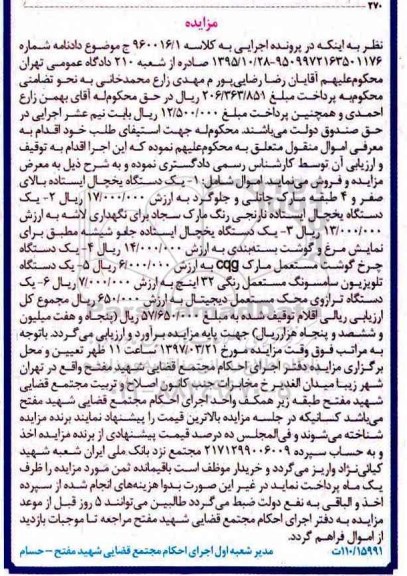 ۲۷۰
مزایده
نظر به اینکه در پرونده اجرایی به کلاسه ۹۶۰۰۱۶/۱ ج موضوع دادنامه شماره
۹۵۰۹۹۷۲۱۶۳۵۰۱۱۷۶-۱۳۹۵/۱۰/۲۸ صادره از شعبه ۲۱۰ دادگاه عمومی تهران
محکوم‌علیهم آقایان رضا رضایی‌پور م مهدی زارع محمدخانی به نحو تضامنی
محکومیه پرداخت مبلغ ۲۰۶/۳۶۳/۸۵۱ ریال در حق محکوم‌له آقای بهمن زارع
احمدی و همچنین پرداخت مبلغ ۱۲/۵۰۰/۰۰۰ ریال بابت نیم عشر اجرایی در
حق صندوق دولت می‌باشند. محکوم‌له جهت استیفای طلب خود اقدام به
معرفی اموال منقول متعلق به محکوم‌علیهم نموده که این اجرا اقدام به توقیف
و ارزیابی آن توسط کارشناس رسمی دادگستری نموده و به شرح ذیل به معرض
مزایده و فروش می‌نماید. اموال شامل: ۱- یک دستگاه یخچال ایستاده بالای
صفر و ۴ طبقه مارک جانلی و جلوگرد به ارزش ۱۷/۰۰۰/۰۰۰ ریال ۲- یک
دستگاه یخچال ایستاده نارنجی رنگ مارک سجاد برای نگهداری لاشه به ارزش
۱۳/۰۰۰/۰۰۰ ریال ۳- یک دستگاه یخچال ایستاده جفو شیشه مطبق برای
نمایش مرغ و گوشت بسته‌بندی به ارزش ۱۴/۰۰۰/۰۰۰ ریال ۴- یک دستگاه
چرخ گوشت مستعمل مارک cqg به ارزش ۶/۰۰۰/۰۱۰ ریال ۵- یک دستگاه
تلویزیون سامسونگ مستعمل رنگی ۳۲ اینچ به ارزش ۷/۰۰۰/۰۰۰ ریال ۶- یک
دستگاه ترازوی محک مستعمل دیجیتال به ارزش ۶۵۰/۰۰۰ ریال مجموع کل
ارزیابی ریالی اقلام توقیف شده به مبلغ ۵۷/۶۵۰/۰۰۰ ریال (پنجاه و هفت میلیون
و ششصد و پنجاه هزارریال) جهت پایه مزایده برآورد و ارزیابی می‌گردد. باتوجه
به مراتب فوق وقت مزایده مورخ ۱۳۹۷/۰۳/۲۱ ساعت ۱۱ ظهر تعیین و محل
برگزاری مزایده دفتر اجرای احکام مجتمع قضایی شهید مفتح واقع در تهران
شهر زیبا میدان الغدیر خ مخابرات جنب کانون اصلاح و تربیت مجتمع قضایی
شهید مفتح طبقه زیر همکف واحد اجرای احکام مجتمع قضایی شهید مفتح
می‌باشد کسانیکه در جلسه مزایده بالاترین قیمت را پیشنهاد نمایند برنده مزایده
شناخته می‌شوند و فی‌المجلس ده درصد قیمت پیشنهادی از برنده مزایده اخذ
و به حساب سپرده ۲۱۷۱۲۹۹۰۰۶۰۰۹ مجتمع نزد بانک ملی ایران شعبه شهید
کیانی‌نژاد واریز می‌گردد و خریدار موظف است باقیمانده ثمن مورد مزایده را ظرف
یک ماه پرداخت نماید در غیر این صورت بدوا هزینه‌های انجام شده از سپرده
اخذ و الباقی به نفع دولت ضبط می‌گردد طالبین می‌توانند ۵ روز قبل از موعد
مزایده به دفتر اجرای احکام مجتمع قضایی شهید مفتح مراجعه تا موجبات بازدید
از اموال فراهم گردد.
۱۱۰/۱۵۹۹۱ت مدیر شعبه اول اجرای احکام مجتمع قضایی شهید مفتح – حسام